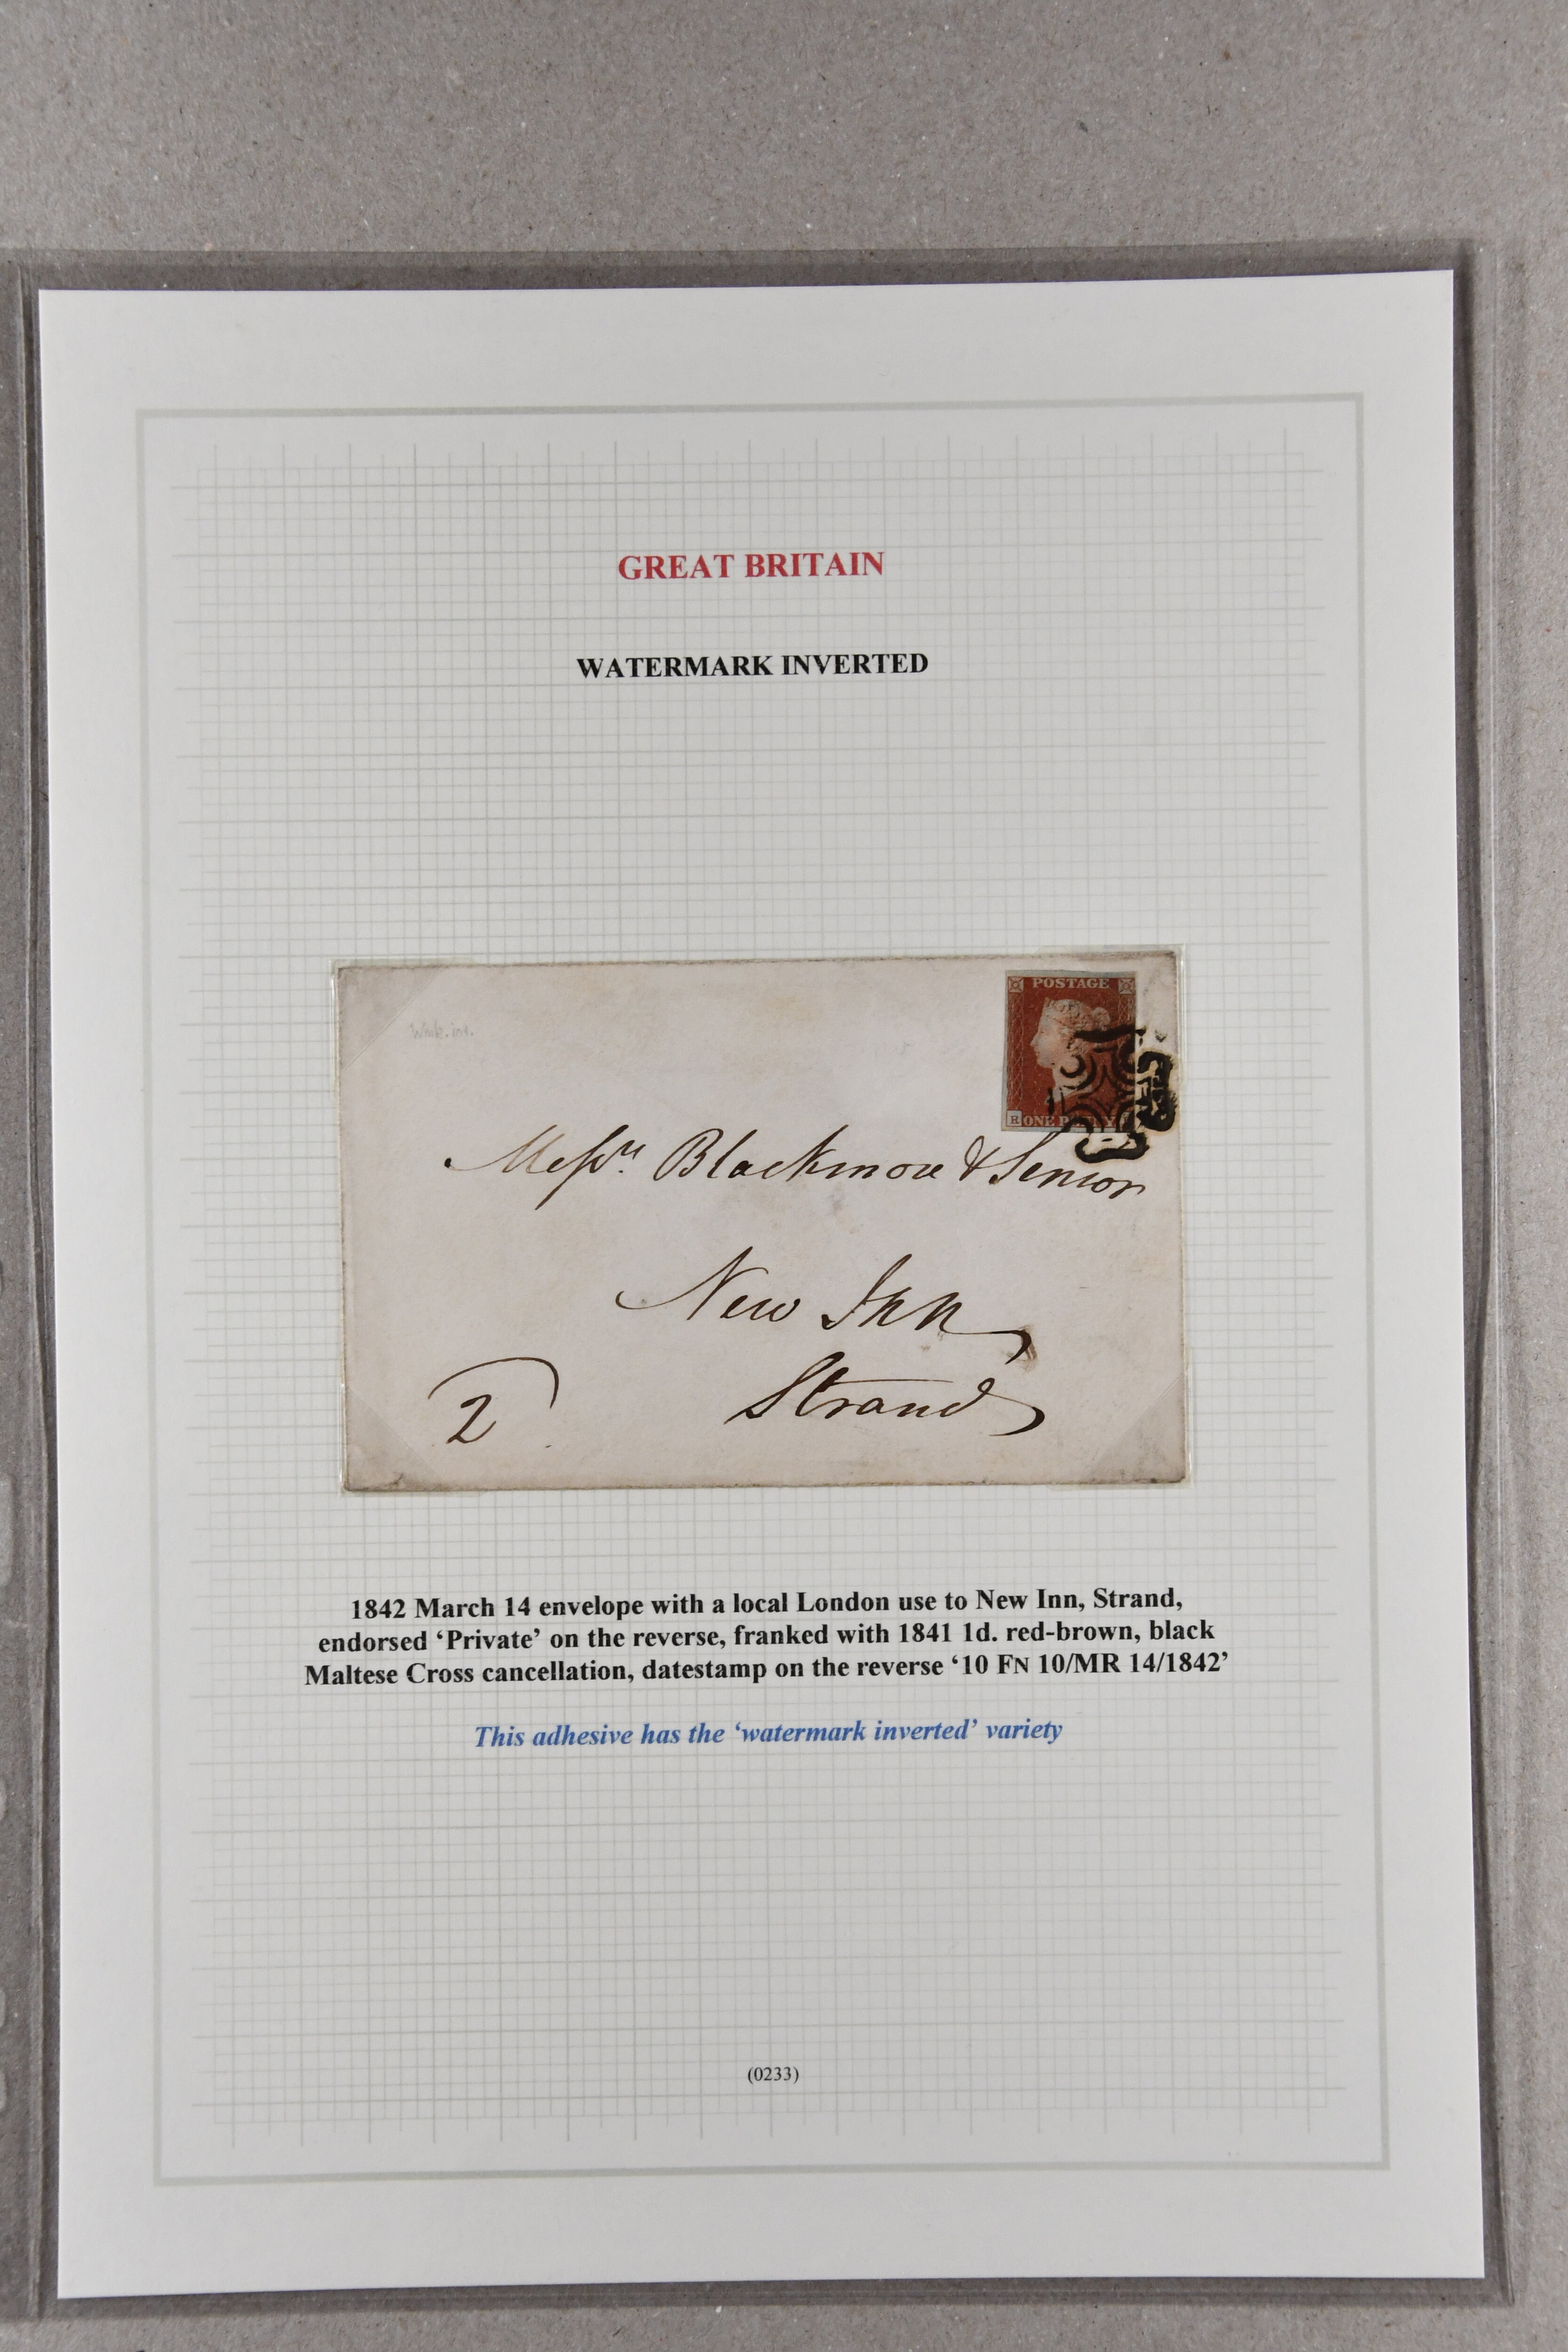 GREAT BRITAIN
WATERMARK INVERTED
Wmk. inv.
POSTAGE
R ONE PENNY
Messrs Blackmore & Senior
New Inn
Strand
2
1842 March 14 envelope with a local London use to New Inn, Strand,
endorsed ‘Private’ on the reverse, franked with 1841 1d. red-brown, black
Maltese Cross cancellation, datestamp on the reverse ‘10 FN 10/MR 14/1842’
This adhesive has the ‘watermark inverted’ variety
(0233)